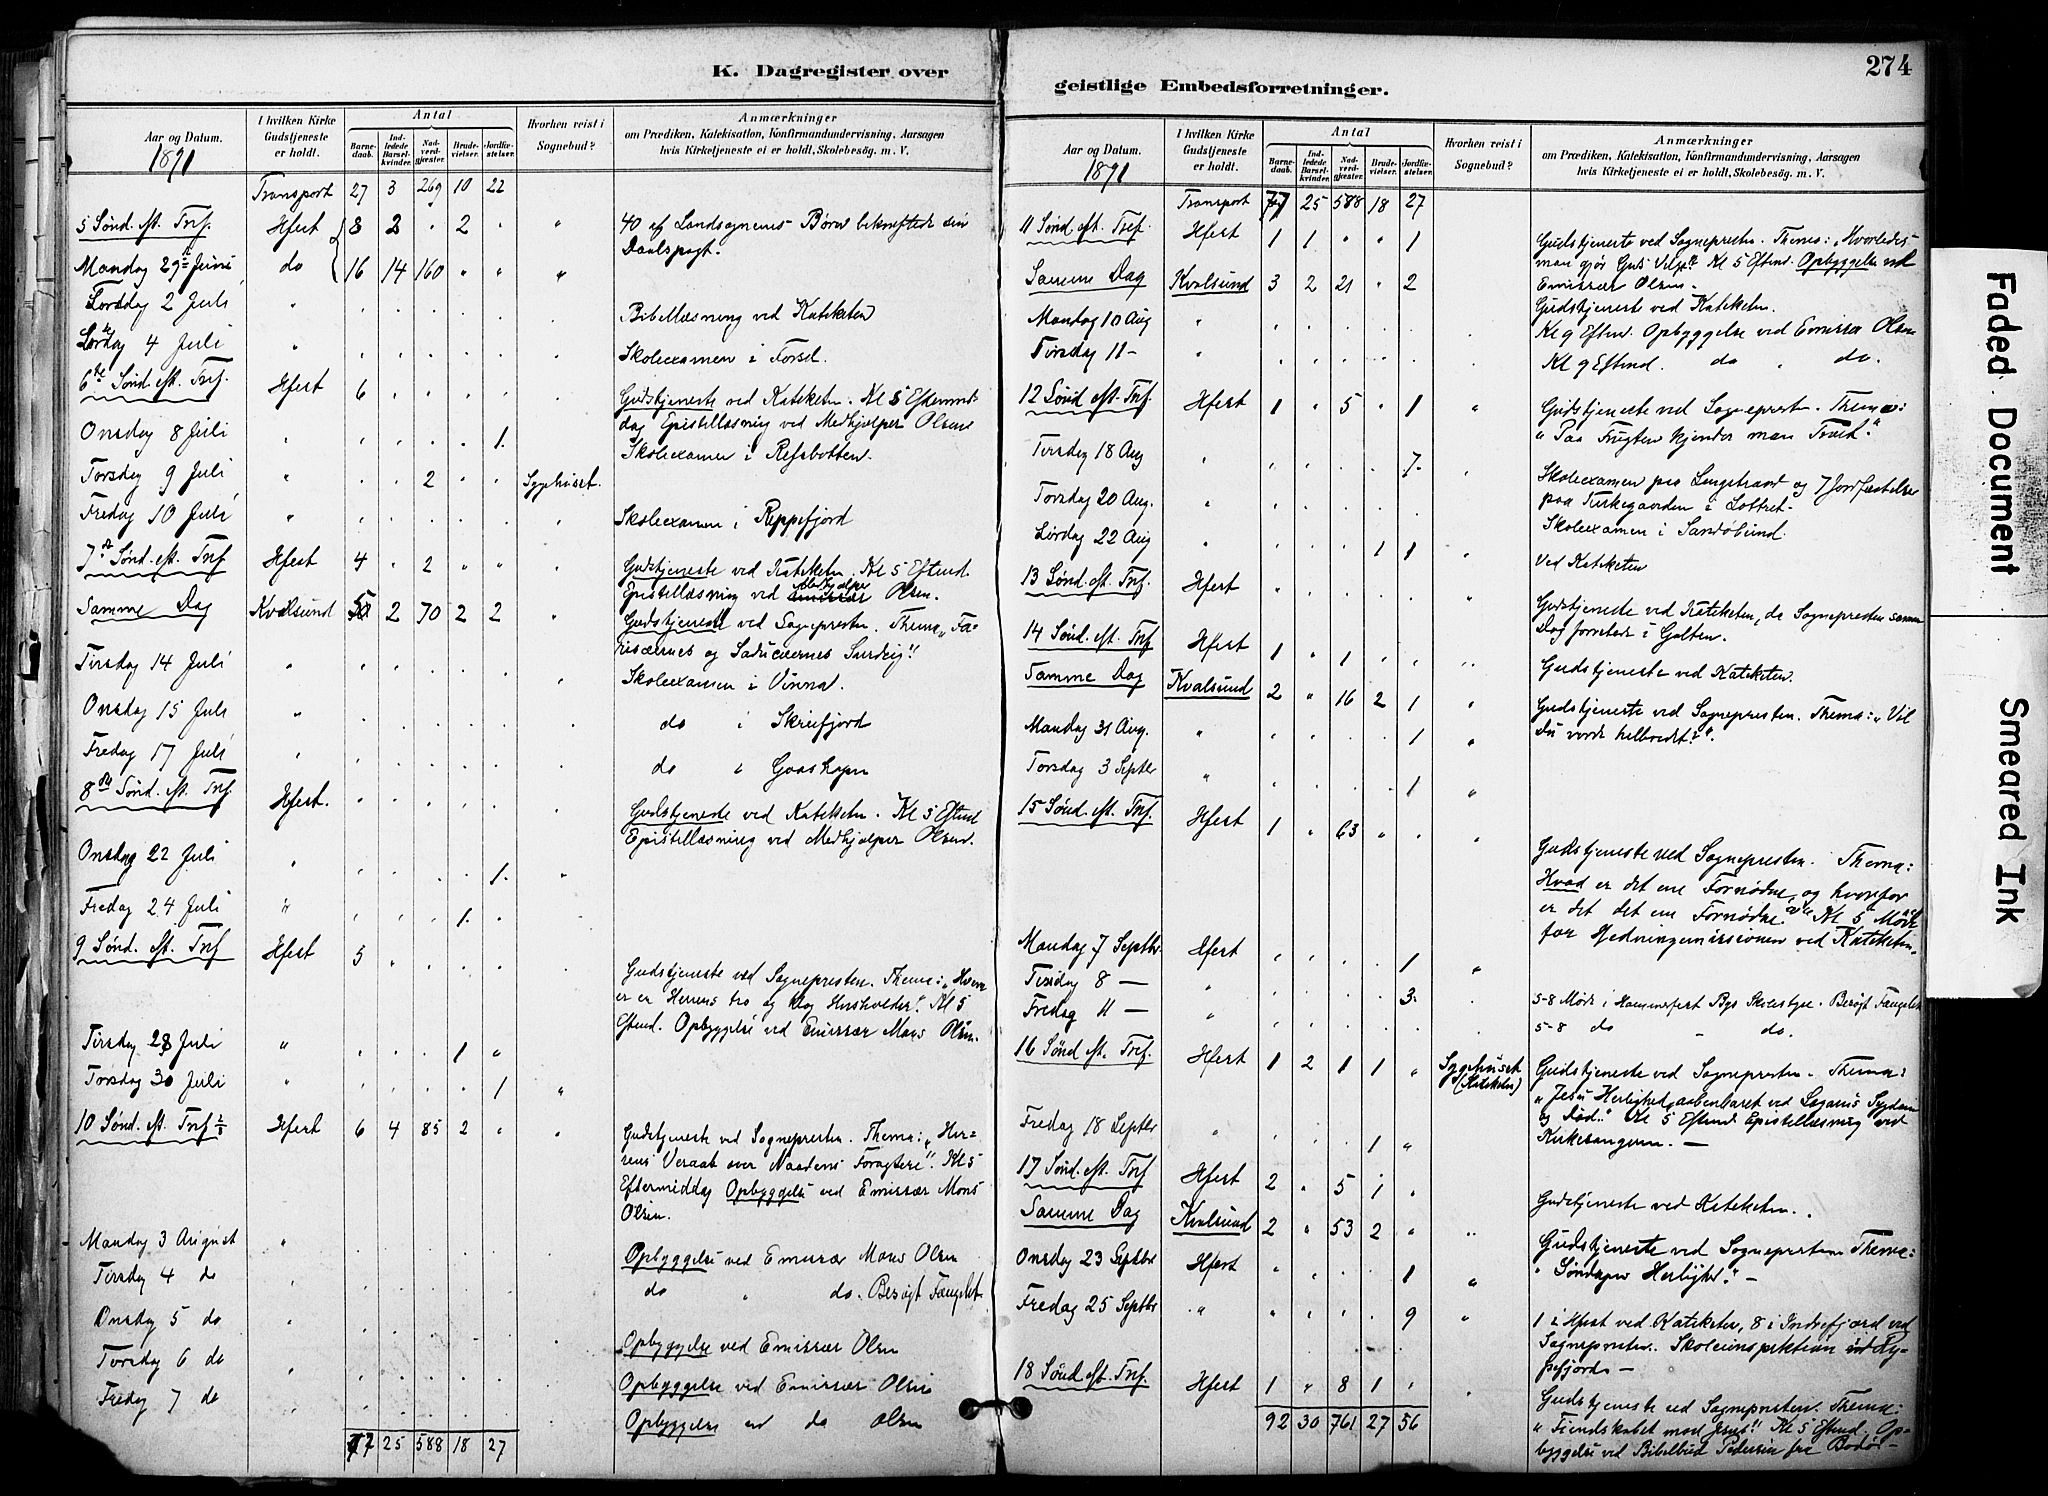 K. Dagregister over
Aar og Datum.
1891
I hvilken Kirke Gudstjeneste er holdt.
Antal
Barnedaab.
Indledede Barselkvinder.
Nadverdgjester.
Brudevielser.
Jordfæstelser.
Hvorhen reist i Sognebud?
Anmærkninger
om Prædiken, Katekisation, Konfirmandundervisning, Aarsagen
hvis Kirketjeneste ei er holdt, Skolebesøg. m. V.
Transport 27 3 269 10 22
5 Sønd. eft. Tref. Hfest 8 2 " 2 " " 40 af Landsognenes Børn bekræftede sin
Daabspagt.
Mandag 29de Juni do 16 14 160 " " "
Torsdag 2 Juli " Bibellæsning ved Kateketen
Lørdag 4 Juli " Skoleexamen i Forsøl.
6te Sønd. eft. Tref. Hfest 6 Gudstjeneste ved Kateketen. Kl 5 Eftermid-
dag Epistellæsning ved Medhjælper Olsen
Onsdag 8 Juli " 1. Skoleexamen i Refsbotten.
Torsdag 9 Juli " 2 Sygehuset.
Fredag 10 Juli " Skoleexamen i Reppefjord
7de Sønd. eft. Tref Hfest 4 " 2 " " Gudstjeneste ved Kateketen. Kl 5 Eftmd.
Epistellæsning ved Medhjælper Olsen.
Samme Dag Kvalsund 5 2 70 2 2 " Gudstjeneste ved Sognepresten. Thema "Fa-
risæernes og Saducæernes Surdeig".
Tirsdag 14 Juli " Skoleexamen i Vinna.
Onsdag 15 Juli " do i Skreifjord
Fredag 17 Juli " do i Gaashopen
8de Sønd. eft. Tref Hfest. Gudstjeneste ved Kateketen. Kl 5 Eftmd
Epistellæsning ved Medhjælper Olsen.
Onsdag 22 Juli " 1. "
Fredag 24 Juli " 1.
9 Sønd. eft. Tref Hfest 5 " Gudstjeneste ved Sognepresten. Thema: "Hvem
er er Herrens tro og klog Husholder". Kl 5
Eftmd. Opbyggelse ved Emissær Mons Olsen.
Tirsdag 28 Juli " 1 "
Torsdag 30 Juli " 1 "
10 Sønd. eft. Tref 2/8 Hfest 6 4 85 2 " " Gudstjeneste ved Sognepresten. Thema: "Her-
rens Veraab over Naadens Foragtere". Kl 5
Eftermiddag Opbyggelse ved Emissær Mons
Olsen.
Mandag 3 August " Opbyggelse ved Emissær Mons Olsen
Tirsdag 4 do do " do. Besøgt Fængslet
Onsdag 5 do " Opbyggelse ved Emissær Olsen
Torsdag 6 do " Opbyggelse ved Emissær Olsen
Fredag 7 do Opbyggelse ved do Olsen
77 25 588 18 27
geistlige Embedsforretninger.
274
Aar og Datum.
1891
I hvilken Kirke Gudstjeneste er holdt.
Antal
Barnedaab.
Indledede Barselkvinder.
Nadverdgjester.
Brudevielser.
Jordfæstelser.
Hvorhen reist i Sognebud?
Anmærkninger
om Prædiken, Katekisation, Konfirmandundervisning, Aarsagen
hvis Kirketjeneste ei er holdt, Skolebesøg. m. V.
Transport 77 25 588 18 27
11 Sønd. eft. Tref. Hfest 1 1 " " 1 Gudstjeneste ved Sognepresten. Thema: "Hvorledes
man gjør Guds Vilje". Kl 5 Eftmd. Opbyggelse ved
Emissær Olsen.
Samme Dag Kvalsund 3 2 21 " 2 Gudstjeneste ved Kateketen.
Mandag 10 Aug " Kl 9 Eftm. Opbyggelse ved Emissær Olsen
Tirsdag 11 - " Kl 9 Eftmd. do " do.
12 Sønd eft. Tref. Hfest 1 " 5 " 1 " Gudstjeneste ved Sognepresten. Thema:
"Paa Frugten kjender man Træet."
Tirsdag 18 Aug " 7. Skoleexamen paa Langstrand og 7 Jordfæstelser
paa Kirkegaarden i
Torsdag 20 Aug. " Skoleexamen i Sandøbund.
Lørdag 22 Aug " 1 1 " Ved Kateketen
13 Sønd eft. Tref. Hfest " Gudstjeneste ved Kateketen, da Sognepresten samme
Dag forrettede i Galten.
14 Sønd. eft. Tref Hfest 1 " 1 Gudstjeneste ved Kateketen.
Samme Dag Kvalsund 2 " 16 2 1 " Gudstjeneste ved Sognepresten. Thema: "Vil
Du vorde helbredet?".
Mandag 31 Aug. " 1 "
Torsdag 3 Septbr " 1 "
15 Sønd. eft. Tref. Hfest 1 " 63 " Gudstjeneste ved Sognepresten. Thema:
Hvad er det ene Fornødne, og hvorfor
er det det ene Fornødne? Kl 5 Møde
for Hedningemissionen ved Kateketen.
Mandag 7 Septbr Hfest 1 "
Tirsdag 8 - " 3. 5-8 Møde i Hammerfest Bys Skolestyre. Besøgt Fængslet
Fredag 11 - " 5-8 do - do.
16 Sønd eft. Tref. Hfest 1 2 1 1 " Sygehuset (Kateketen) Gudstjeneste ved Sognepresten. Thema:
"Jesu Herlighed aabenbaret ved Lazarus Sygdom
og Død." Kl 5 Eftmd Epistellæsning ved
Kirkesangeren. -
Fredag 18 Septbr " 1 "
17 Sønd. eft. Tref Hfest 2 " 5 1 Gudstjeneste ved Kateketen.
Samme Dag Kvalsund 2 " 53 2 " " Gudstjeneste ved Sognepresten Thema:
"Søndagens Herlighed." -
Onsdag 23 Septbr Hfest 1 "
Fredag 25 Septbr " 9 " 1 i Hfest ved Kateketen, 8 i Indrefjord ved
Sognepresten. Skoleinspektion ved Ry-
pefjord -
18 Sønd eft Tref. Hfest 1 " 8 1 Gudstjeneste ved Sognepresten. Thema:
"Fiendskabet mod Jesus". Kl 5 Eftmd. Op-
byggelse ved Bibelbud Pedersen fra Bodø.-
92 30 761 27 56
Faded Document
Smeared Ink